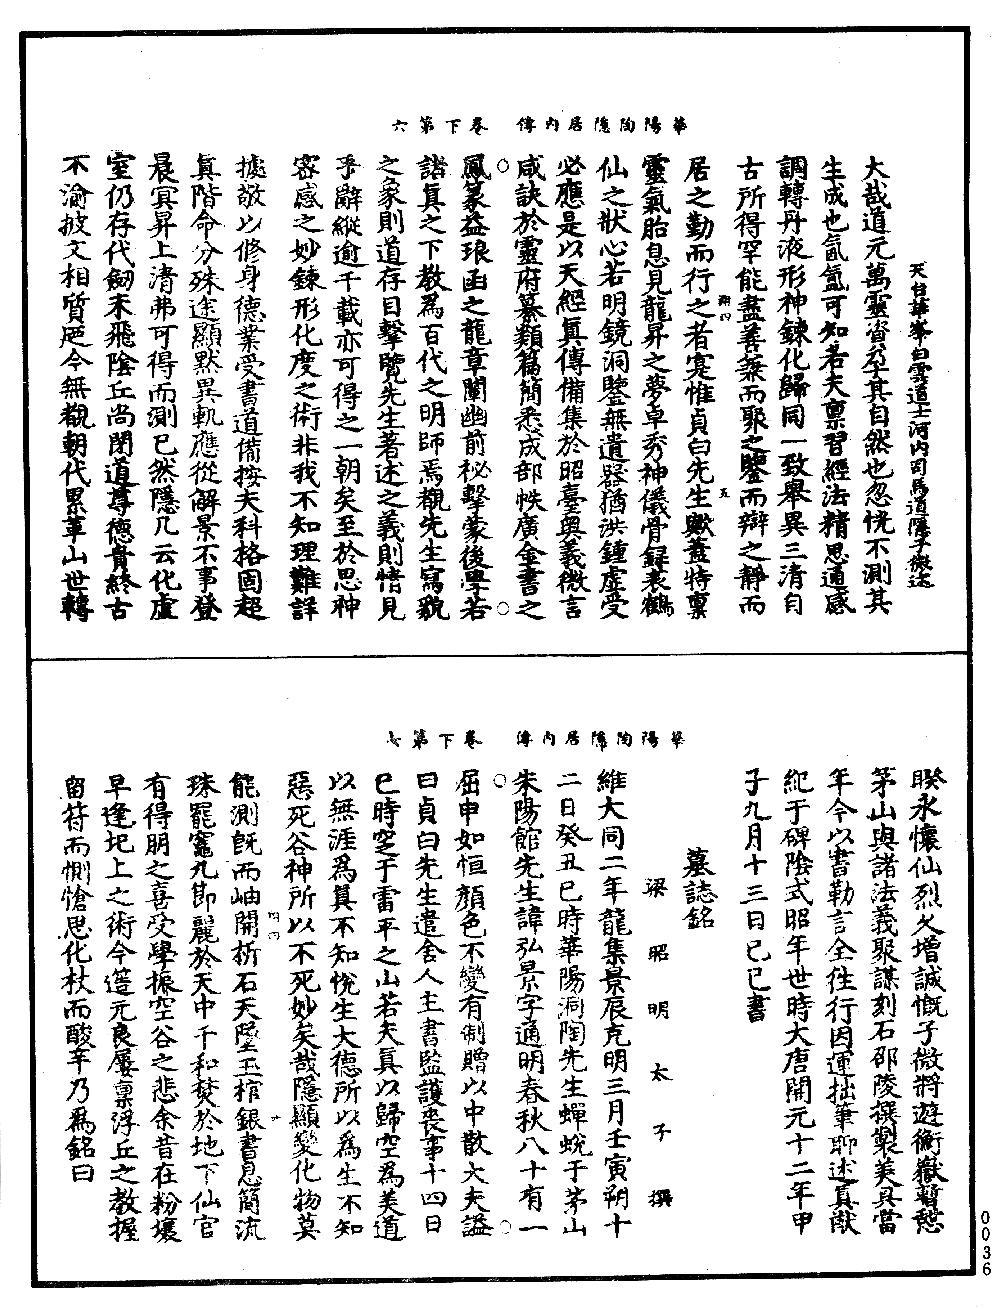 華陽陶隱居內傳　卷下第六
天台華峯白雲道士河內司馬道隱子微述
大哉道元萬靈資孕其自然也忽恍不測其
生成也氤氳可知若夫稟習經法精思通感
調轉丹液形神鍊化歸同一致舉異三清自
古所得罕能盡善兼而聚之鑒而辯之靜而
居之勤而行之者寔惟貞白先生歟蓋特稟
靈氣胎息見龍昇之夢卓秀神儀骨録表鶴
仙之狀心若明鏡洞鑒無遺器猶洪鍾虛受
必應是以天經真傳備集於昭臺奥義微言
咸訣於靈府纂類篇簡悉成部帙廣金書之
鳳篆益琅函之龍章闡幽前祕擊蒙後學若
諸真之下教爲百代之明師焉覩先生寫貌
之象則道存目擊覽先生著述之義則情見
乎辭縱逾千載亦可得之一朝矣至於思神
密感之妙鍊形化度之術非我不知理難詳
據敬以修身德業受書道備按夫科格固超
真階命分殊途顯黙異軌應從解景不事登
晨冥昇上清弗可得而測已然隱几云化虛
室仍存代劒未飛陰丘尚閉道尊德貴終古
不渝披文相質迺今無覩朝代累革山世轉
華陽陶隱居內傳　卷下第七
睽永懷仙烈久增誠慨子微將遊衡嶽暫憩
茅山與諸法義聚謀刻石邵陵撰製美具當
年今以書勒言全往行因運拙筆聊述真猷
紀于碑陰式昭年世時大唐開元十二年甲
子九月十三日己巳書
墓誌銘
梁昭明太子撰
維大同二年龍集景辰克明三月壬寅朔十
二日癸丑巳時華陽洞陶先生蟬蛻于茅山
朱陽館先生諱弘景字通明春秋八十有一
屈申如恒顔色不變有制贈以中散大夫謚
曰貞白先生遣舍人主書監護喪事十四日
巳時窆于雷平之山若夫真以歸空爲美道
以無涯爲真不知悅生大德所以爲生不知
惡死谷神所以不死妙矣哉隱顯變化物莫
能測旣而岫開折石天墜玉棺銀書息簡流
珠罷竈九節麗於天中千和焚於地下仙官
有得朋之喜受學振空谷之悲余昔在粉壤
早逢圯上之術今簉元良屢稟浮丘之教握
留符而惻愴思化杖而酸辛乃爲銘曰
0036